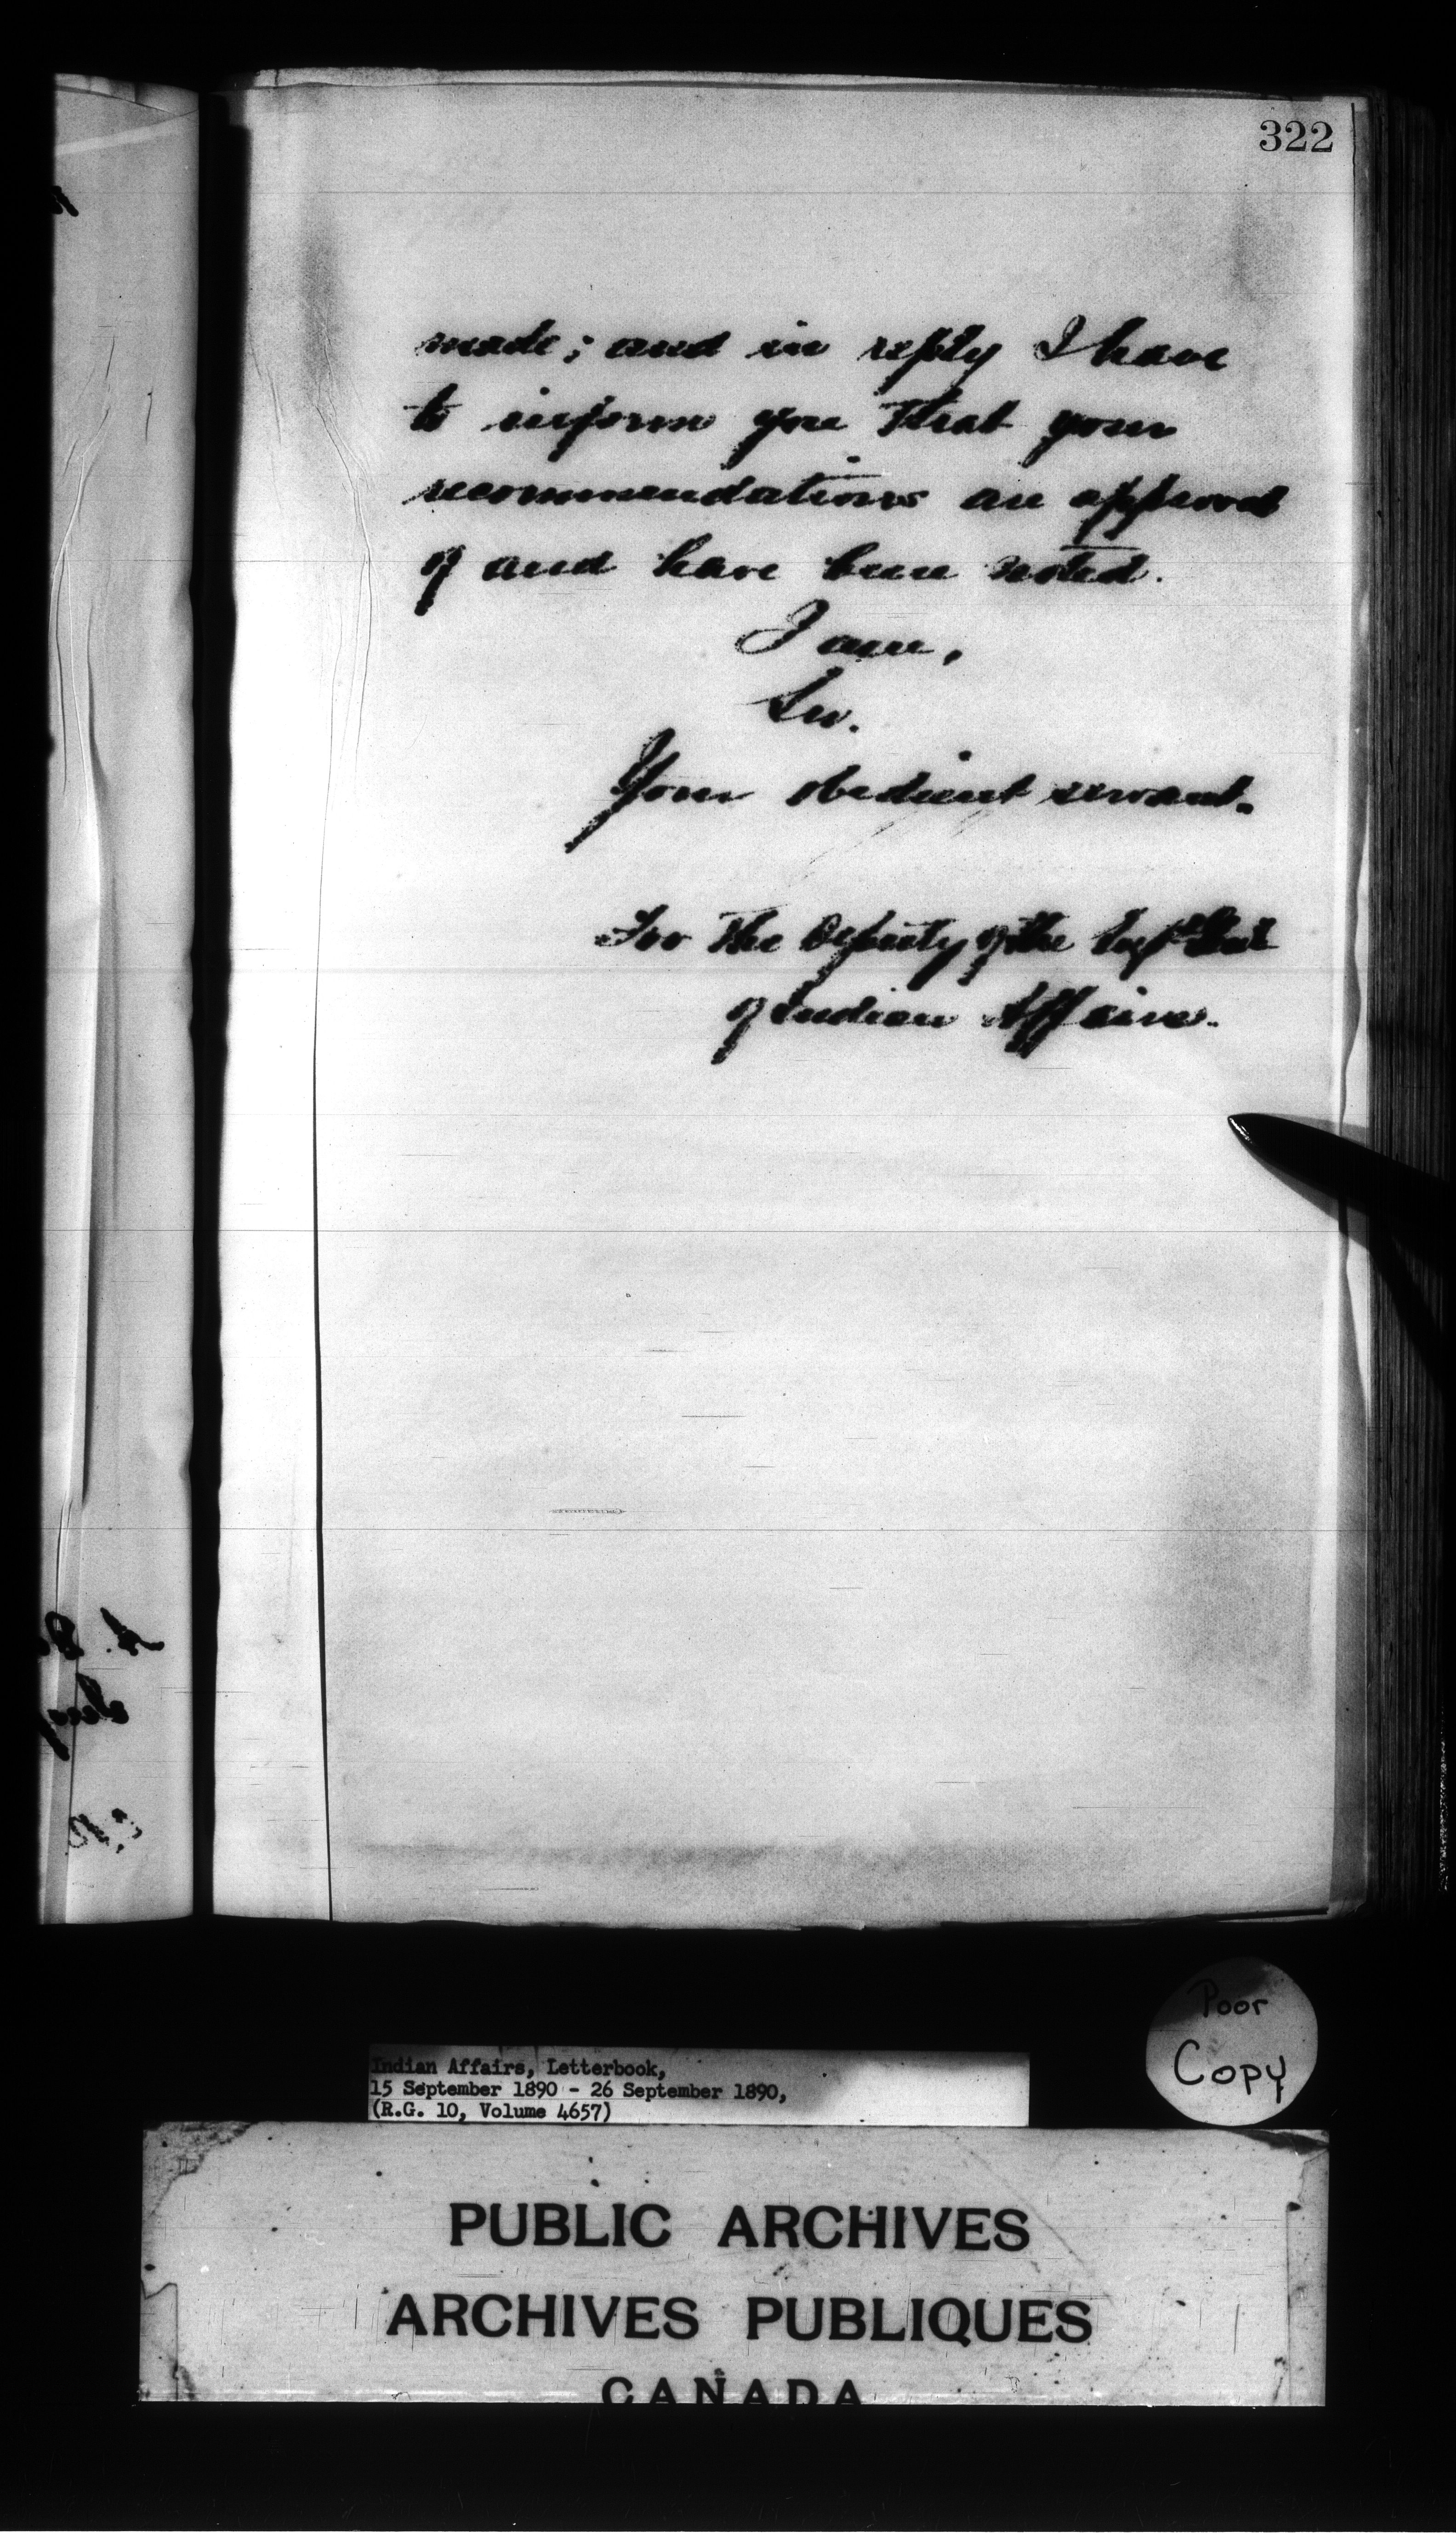 322
made; and in reply I have
to inform you that your
recommendations are approved
of and have been noted.
I am,
Sir.
Your obedient servant.
For the Deputy of the Supt Genl
of Indian Affairs.
Poor
Copy
Indian Affairs, Letterbook,
15 September 1890 - 26 September 1890,
(R.G. 10, Volume 4657)
PUBLIC ARCHIVES
ARCHIVES PUBLIQUES
CANADA